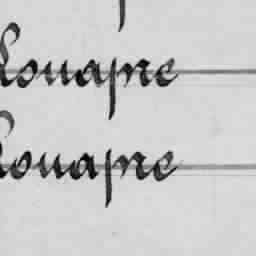 Rouapre
Rouapre